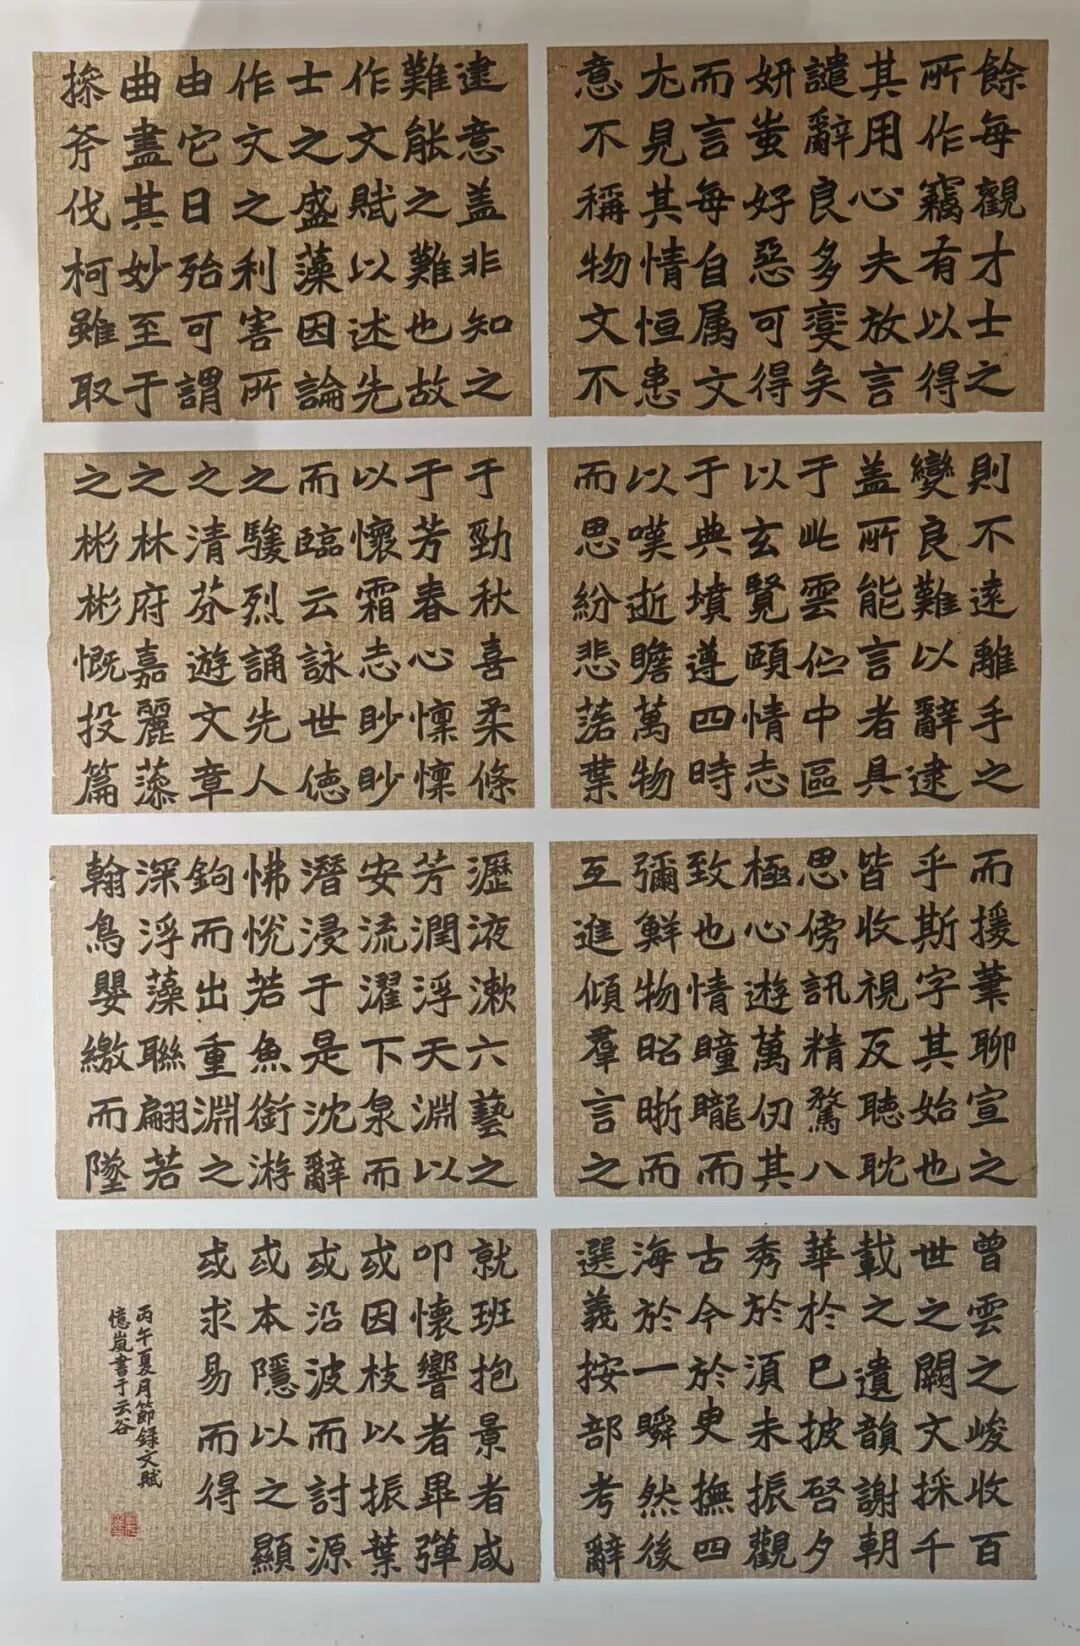 餘每觀才士之
所作竊有以得
其用心夫放言
譴辭良多變矣
妍蚩好惡可得
而言每自属文
尤見其情恒患
意不稱物文不
逮意盖非知之
難能之難也故
作文賦以述先
士之盛藻因論
作文之利害所
由它日殆可謂
曲盡其妙至于
操斧伐柯雖取
則不遠離手之
變良難以辭逮
盖所能言者具
于此雲伫中區
以玄覽頤情志
于典墳遵四時
以嘆逝瞻萬物
而思紛悲落葉
于勁秋喜柔條
于芳春心懍懍
以懷霜志眇眇
而臨云詠世德
之駿烈誦先人
之清芬遊文章
之林府嘉麗藻
之彬彬慨投篇
而援筆聊宣之
乎斯字其始也
皆收視反聽耽
思傍訊精騖八
極心遊萬仞其
致也情曈曨而
彌鮮物昭晰而
互進傾羣言之
瀝液漱六藝之
芳潤浮天淵以
安流濯下泉而
潛浸于是沈辭
怫悅若魚銜游
鉤而出重淵之
深浮藻聯翩若
翰鳥嬰繳而墜
曾雲之峻收百
世之闕文採千
載之遺韻謝朝
華於已披啓夕
秀於須未振觀
古今於史撫四
海於一瞬然後
選義按部考辭
就班抱景者咸
叩懷響者畢彈
或因枝以振葉
或沿波而討源
或本隱以之顯
或求易而得
丙午夏月節録文賦
憶嵐書于云谷